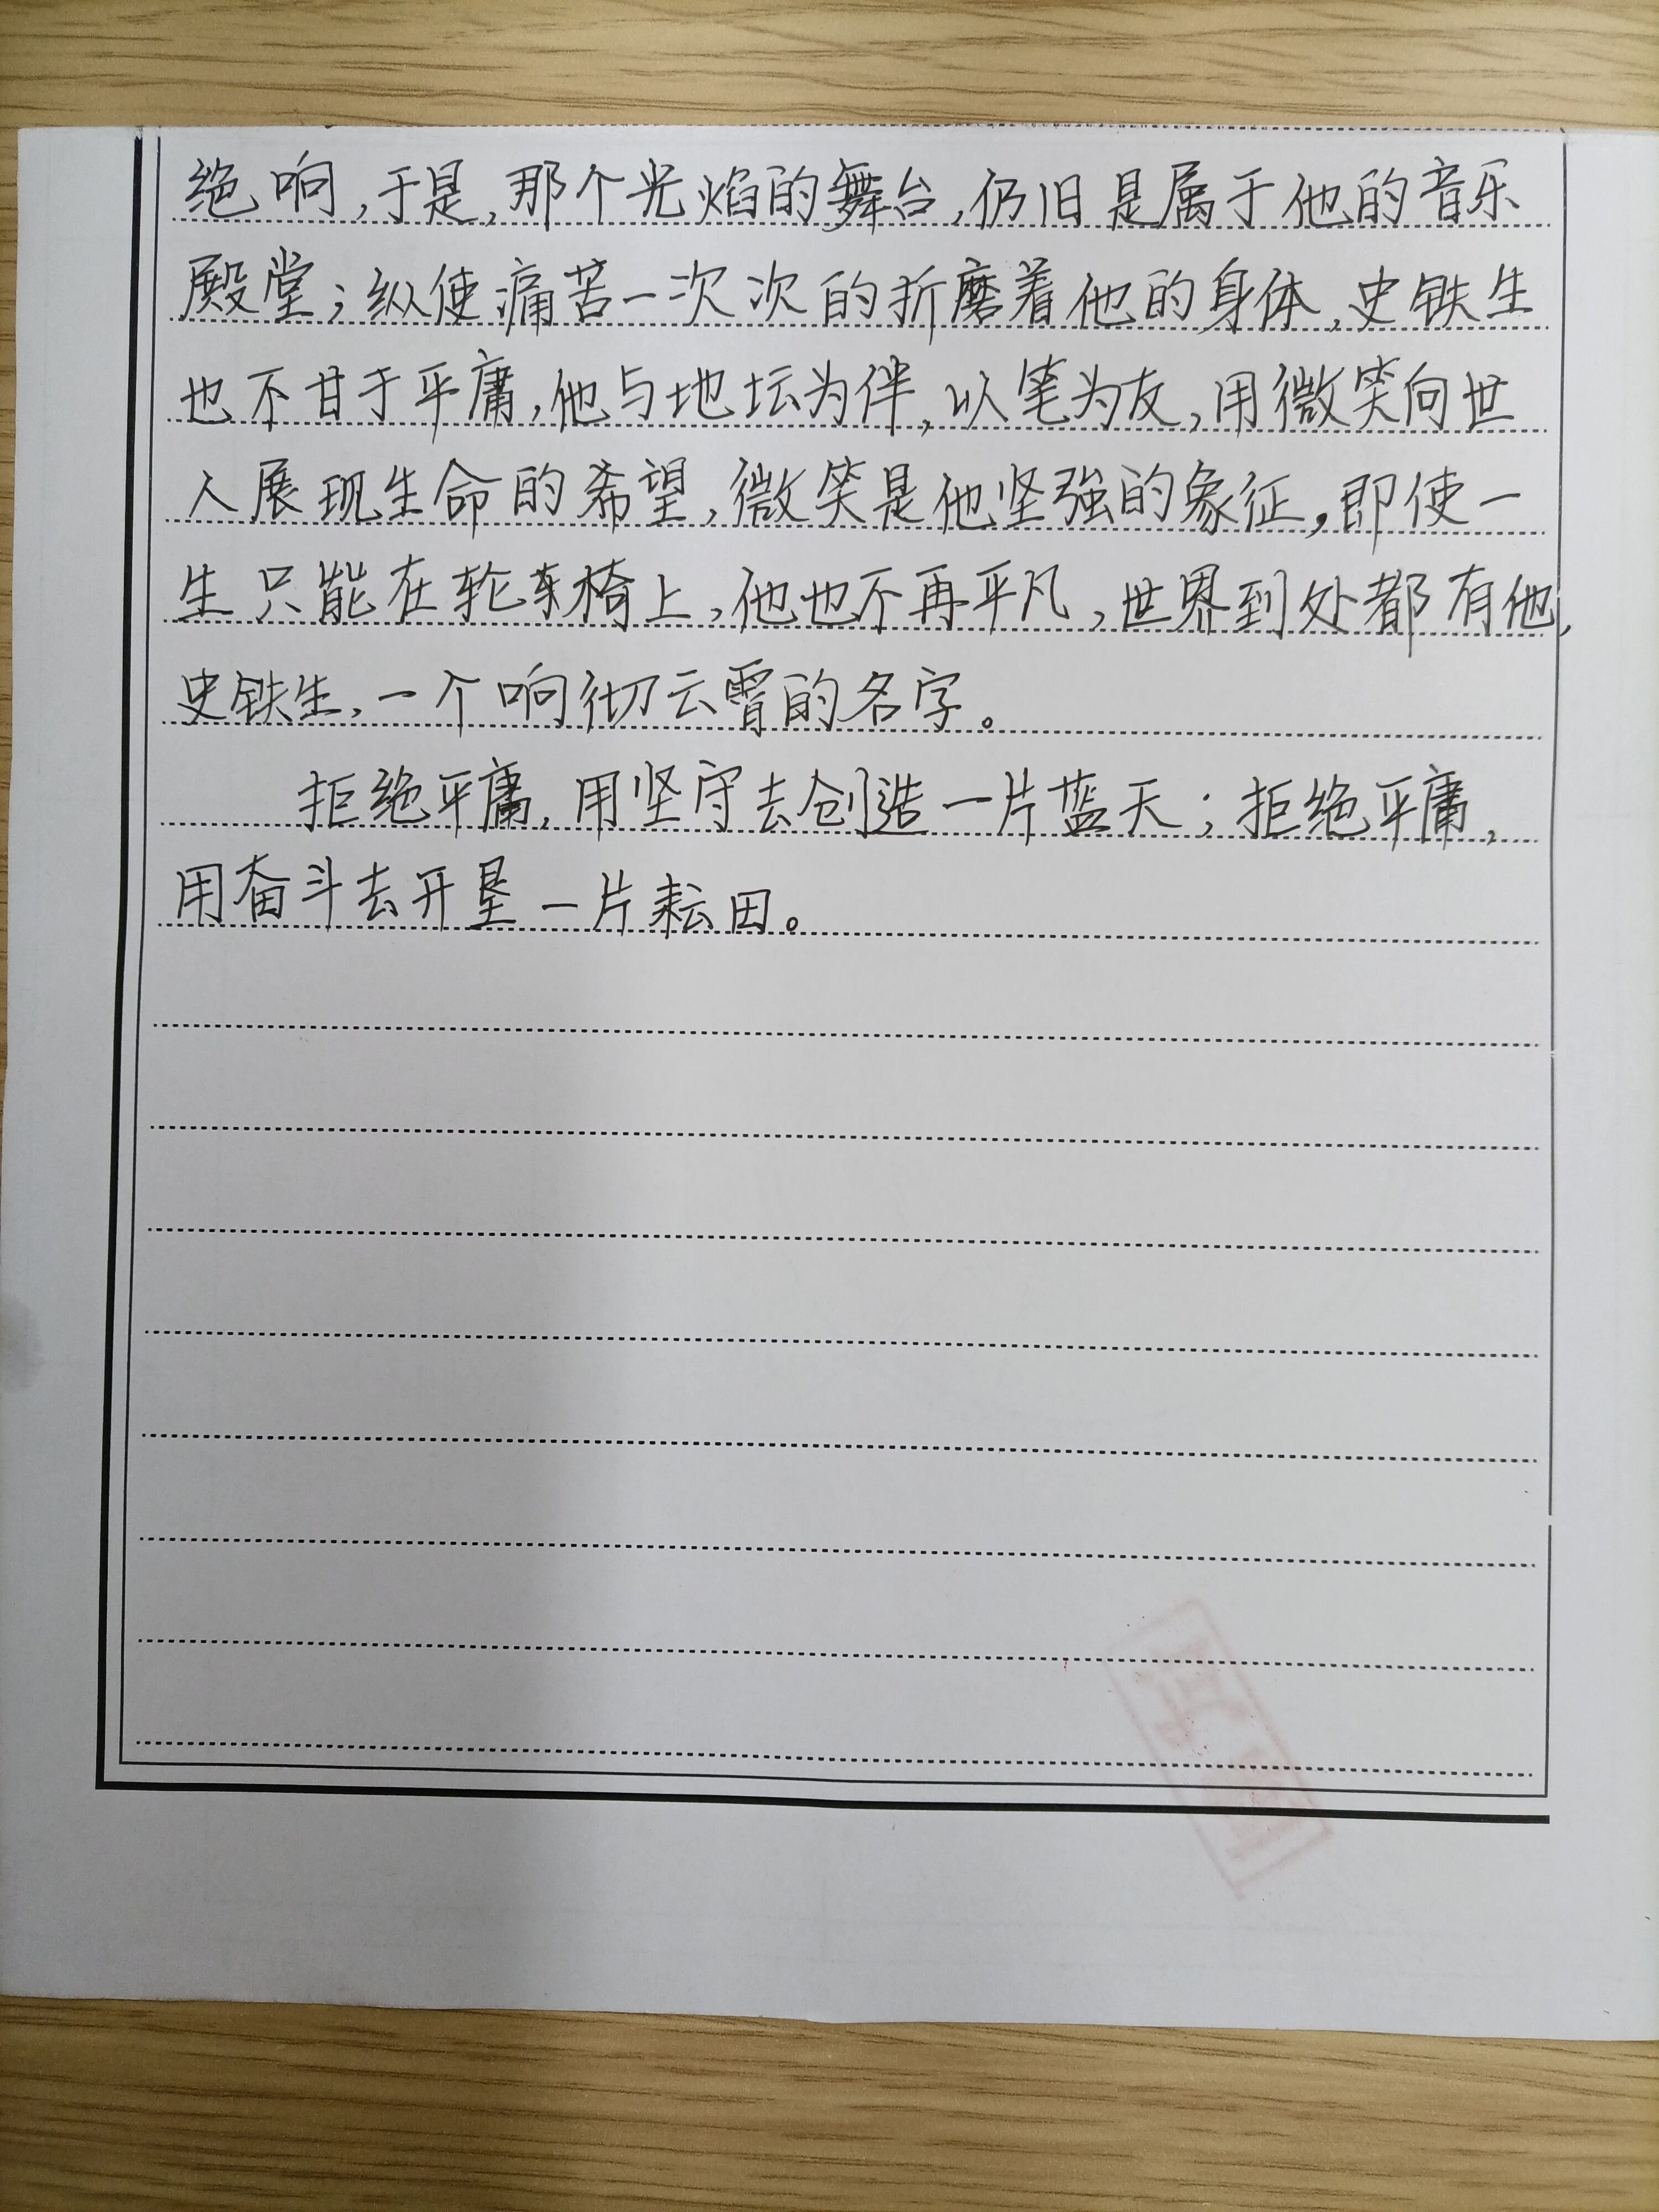 绝响,于是,那个光焰的舞台,仍旧是属于他的音乐
殿堂;纵使痛苦一次次的折磨着他的身体,史铁生
也不甘于平庸,他与地坛为伴,以笔为友,用微笑向世
人展现生命的希望,微笑是他坚强的象征,即使一
生只能在轮车椅上,他也不再平凡,世界到处都有他,
史铁生,一个响彻云霄的名字。
拒绝平庸,用坚守去创造一片蓝天;拒绝平庸,
用奋斗去开垦一片耘田。